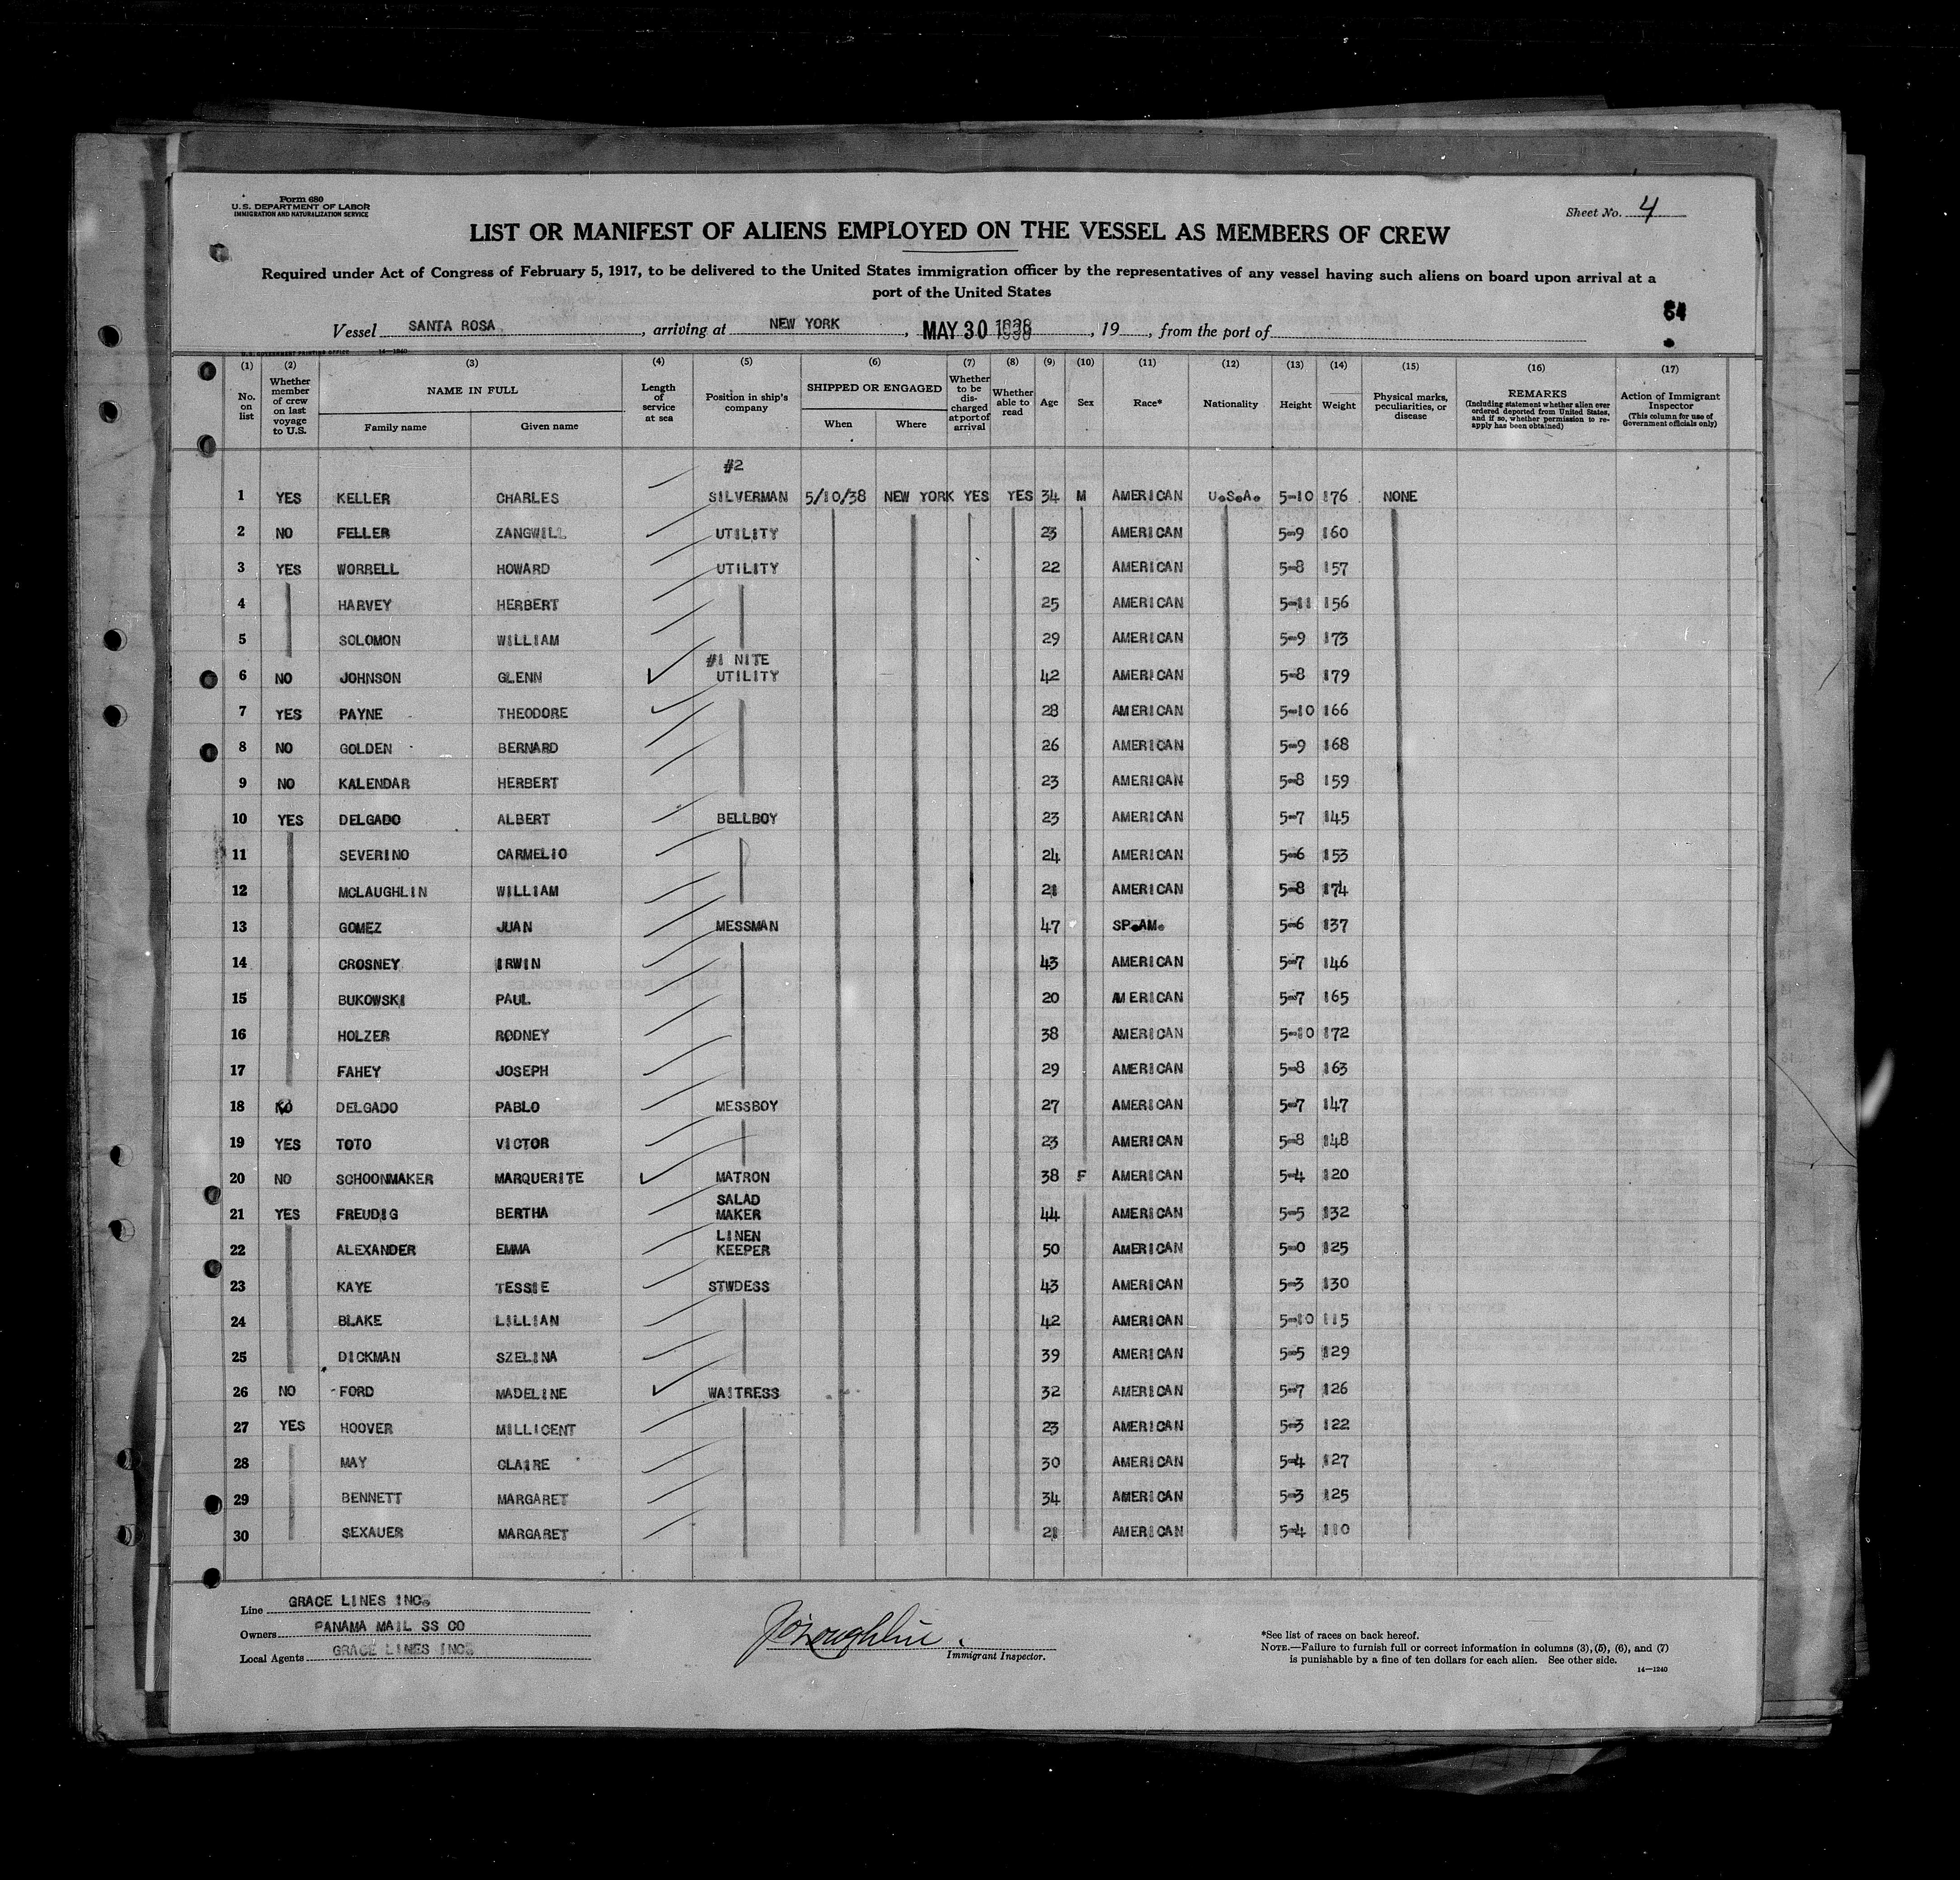 Form 680
U. S. DEPARTMENT OF LABOR
IMMIGRATION AND NATURALIZATION SERVICE
Sheet No. 4
LIST OR MANIFEST OF ALIENS EMPLOYED ON THE VESSEL AS MEMBERS OF CREW
Required under Act of Congress of February 5, 1917, to be delivered to the United States immigration officer by the representatives of any vessel having such aliens on board upon arrival at a
port of the United States
84
Vessel SANTA ROSA, arriving at NEW YORK, MAY 30 1938, 19, from the port of
U. S. GOVERNMENT PRINTING OFFICE 14—1240
(1) (2) (3) (4) (5) (6) (7) (8) (9) (10) (11) (12) (13) (14) (15) (16) (17)
No. on list
Whether member of crew on last voyage to U.S.
NAME IN FULL
Family name Given name
Length of service at sea
Position in ship's company
SHIPPED OR ENGAGED
When Where
Whether to be discharged at port of arrival
Whether able to read
Age
Sex
Race*
Nationality
Height
Weight
Physical marks, peculiarities, or disease
REMARKS
(Including statement whether alien ever ordered deported from United States, and if so, whether permission to reapply has been obtained)
Action of Immigrant Inspector
(This column for use of Government officials only)
#2
1 YES KELLER CHARLES SILVERMAN 5/10/38 NEW YORK YES YES 34 M AMERICAN U.S.A. 5-10 176 NONE
2 NO FELLER ZANGWILL UTILITY 23 AMERICAN 5-9 160
3 YES WORRELL HOWARD UTILITY 22 AMERICAN 5-8 157
4 HARVEY HERBERT 25 AMERICAN 5-11 156
5 SOLOMON WILLIAM 29 AMERICAN 5-9 173
#1 NITE
6 NO JOHNSON GLENN UTILITY 42 AMERICAN 5-8 179
7 YES PAYNE THEODORE 28 AMERICAN 5-10 166
8 NO GOLDEN BERNARD 26 AMERICAN 5-9 168
9 NO KALENDAR HERBERT 23 AMERICAN 5-8 159
10 YES DELGADO ALBERT BELLBOY 23 AMERICAN 5-7 145
11 SEVERINO CARMELIO 24 AMERICAN 5-6 153
12 MCLAUGHLIN WILLIAM 21 AMERICAN 5-8 174
13 GOMEZ JUAN MESSMAN 47 SP.AM. 5-6 137
14 CROSNEY IRWIN 43 AMERICAN 5-7 146
15 BUKOWSKI PAUL 20 AMERICAN 5-7 165
16 HOLZER RODNEY 38 AMERICAN 5-10 172
17 FAHEY JOSEPH 29 AMERICAN 5-8 163
18 NO DELGADO PABLO MESSBOY 27 AMERICAN 5-7 147
19 YES TOTO VICTOR 23 AMERICAN 5-8 148
20 NO SCHOONMAKER MARQUERITE MATRON 38 F AMERICAN 5-4 120
SALAD
21 YES FREUDIG BERTHA MAKER 44 AMERICAN 5-5 132
LINEN
22 ALEXANDER EMMA KEEPER 50 AMERICAN 5-0 125
23 KAYE TESSIE STWDESS 43 AMERICAN 5-3 130
24 BLAKE LILLIAN 42 AMERICAN 5-10 115
25 DICKMAN SZELINA 39 AMERICAN 5-5 129
26 NO FORD MADELINE WAITRESS 32 AMERICAN 5-7 126
27 YES HOOVER MILLICENT 23 AMERICAN 5-3 122
28 MAY CLAIRE 30 AMERICAN 5-4 127
29 BENNETT MARGARET 34 AMERICAN 5-3 125
30 SEXAUER MARGARET 21 AMERICAN 5-4 110
Line GRACE LINES INC.
Owners PANAMA MAIL SS CO
Local Agents GRACE LINES INC.
J O'Loughlin.
Immigrant Inspector.
*See list of races on back hereof.
NOTE.—Failure to furnish full or correct information in columns (3), (5), (6), and (7)
is punishable by a fine of ten dollars for each alien. See other side.
14—1240